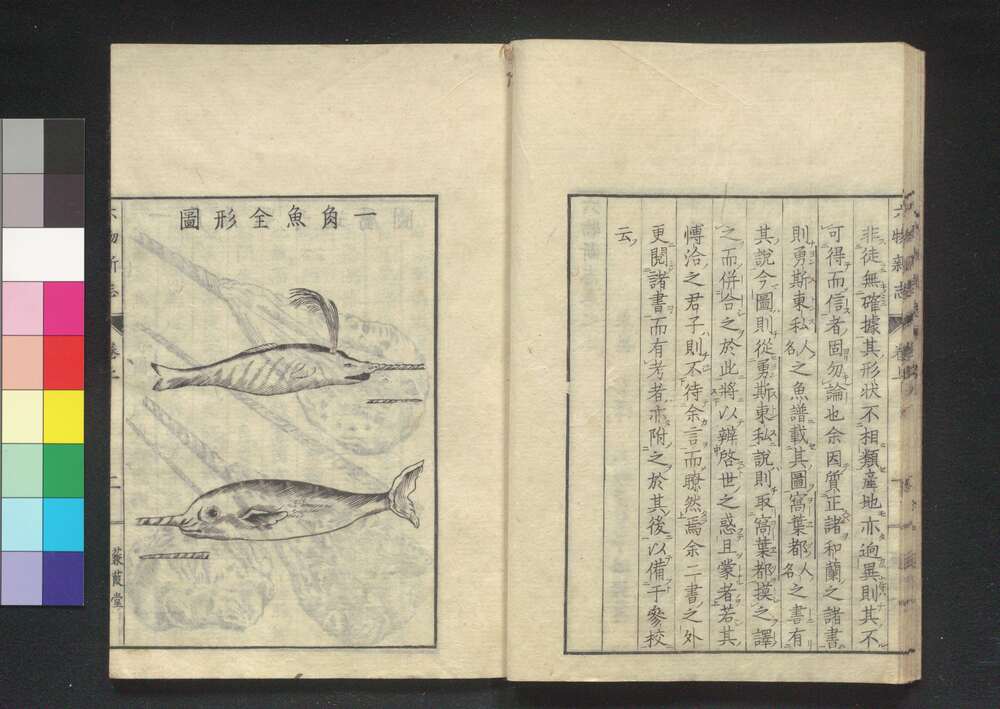 六物新志
卷上
非徒無確據其形状不相類産地亦逈異則其不
可得而信者固勿論也余因質正諸和蘭之諸書
則勇斯東私人名之魚譜載其圖窩葉都人名之書有
其説今圖則從勇斯東私説則取窩葉都摸之譯
之而併合之於此將以辯啓世之惑且蒙者若其
愽洽之君子則不待余言而瞭然焉余二書之外
更閲諸書而有考者亦附之於其後以備于參校
云
一角魚全形圖
六物新志
卷上
二
蒹葭堂